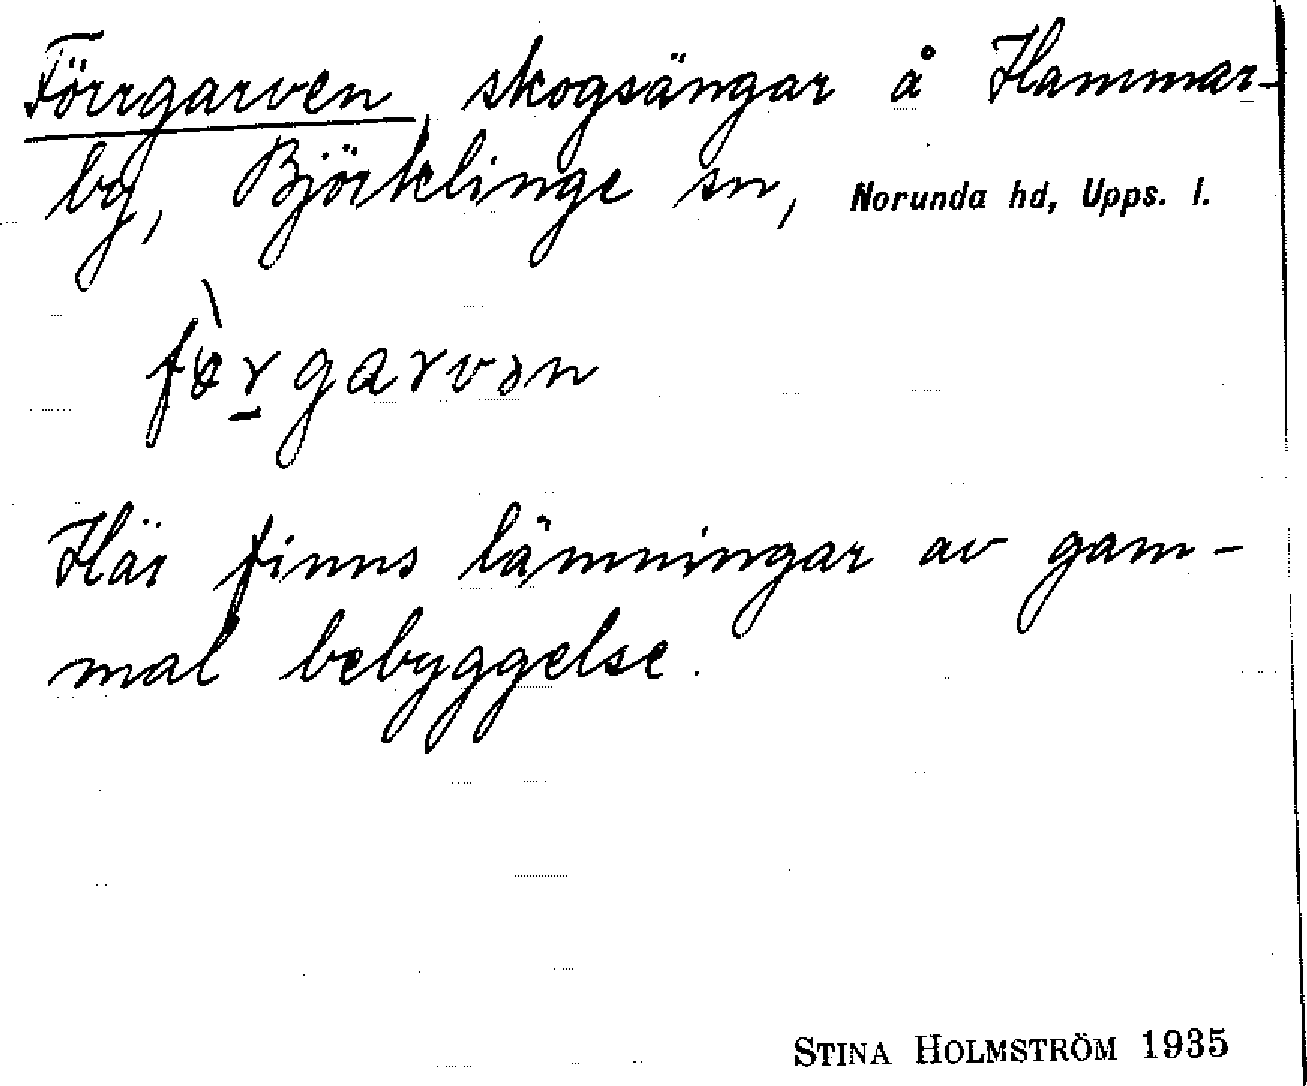 Förrgarven, skogsängar å Hammar-
by, Björklinge sn, Norunda hd, Upps. l.
fò̀rgarvən
Här finns lämningar av gam-
mal bebyggelse.
STINA HOLMSTRÖM 1935